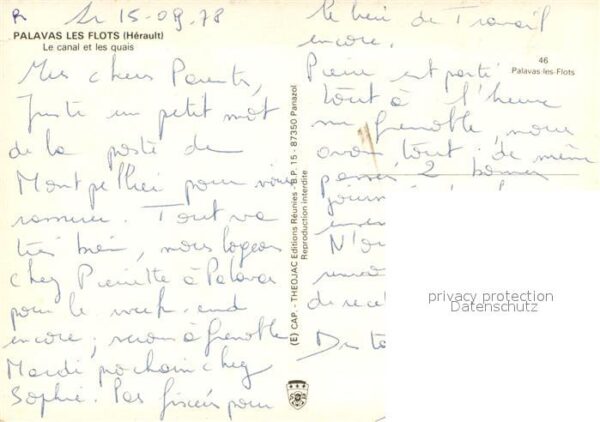 R
Le 15-09.78
PALAVAS LES FLOTS (Hérault)
Le canal et les quais
Mes chers Parents,
Juste un petit mot
de la poste de
Montpellier pour vous
rassurer. Tout va
très bien, nous logeons
chez Pierrette à Palavas
pour le week-end
encore; serons à Grenoble
Mardi prochain chez
Sophie. Pas foncés pour
(E) CAP. - THEOJAC Editions Réunies - B.P. 15 - 87350 Panazol
Reproduction interdite
46
Palavas-les-Flots
le lieu de Travail
encore.
Pierre est parti
tout à l'heure
sur Grenoble, nous
avons tout de même
passé 2 bonnes
journ
N'ou
de rece
privacy protection
Datenschutz